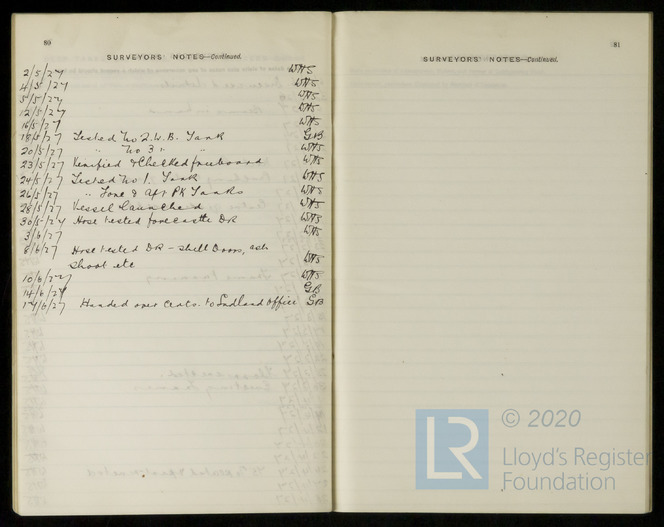 80
SURVEYORS' NOTES—Continued.
2/5/27 WHS
4/5/27 WHS
5/5/27 WHS
12/5/27 WHS
16/5/27 WHS
18/5/27 Tested No 2. W.B. Tank GB
20/5/27 " No 3 " " WHS
23/5/27 Verified & Checked freeboard WHS
24/5/27 Tested No 1. Tank WHS
26/5/27 " Fore & Aft PK Tanks WHS
28/5/27 Vessel Launched WHS
30/5/27 Hose tested forecastle DK WHS
3/6/27 WHS
8/6/27 Hose tested DK – shell Doors, ash
shoot etc WHS
10/6/27 WHS
14/6/27 GB
17/6/27 Handed over Certs. to Sndland office GB
81
SURVEYORS' NOTES—Continued.
LR
© 2020
Lloyd's Register
Foundation